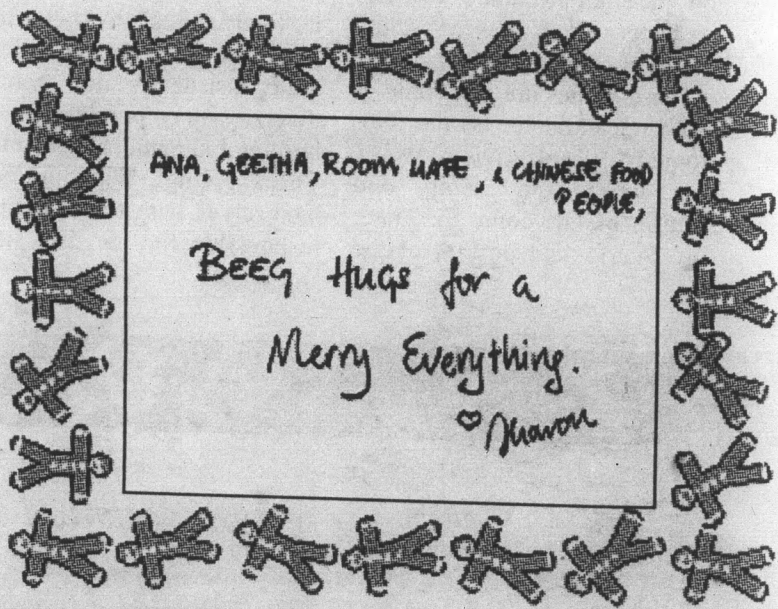 ANA, GEETHA, ROOM MATE, & CHINESE FOOD
PEOPLE,
BEEG HUGS for a
Merry Everything.
♡ Sharon